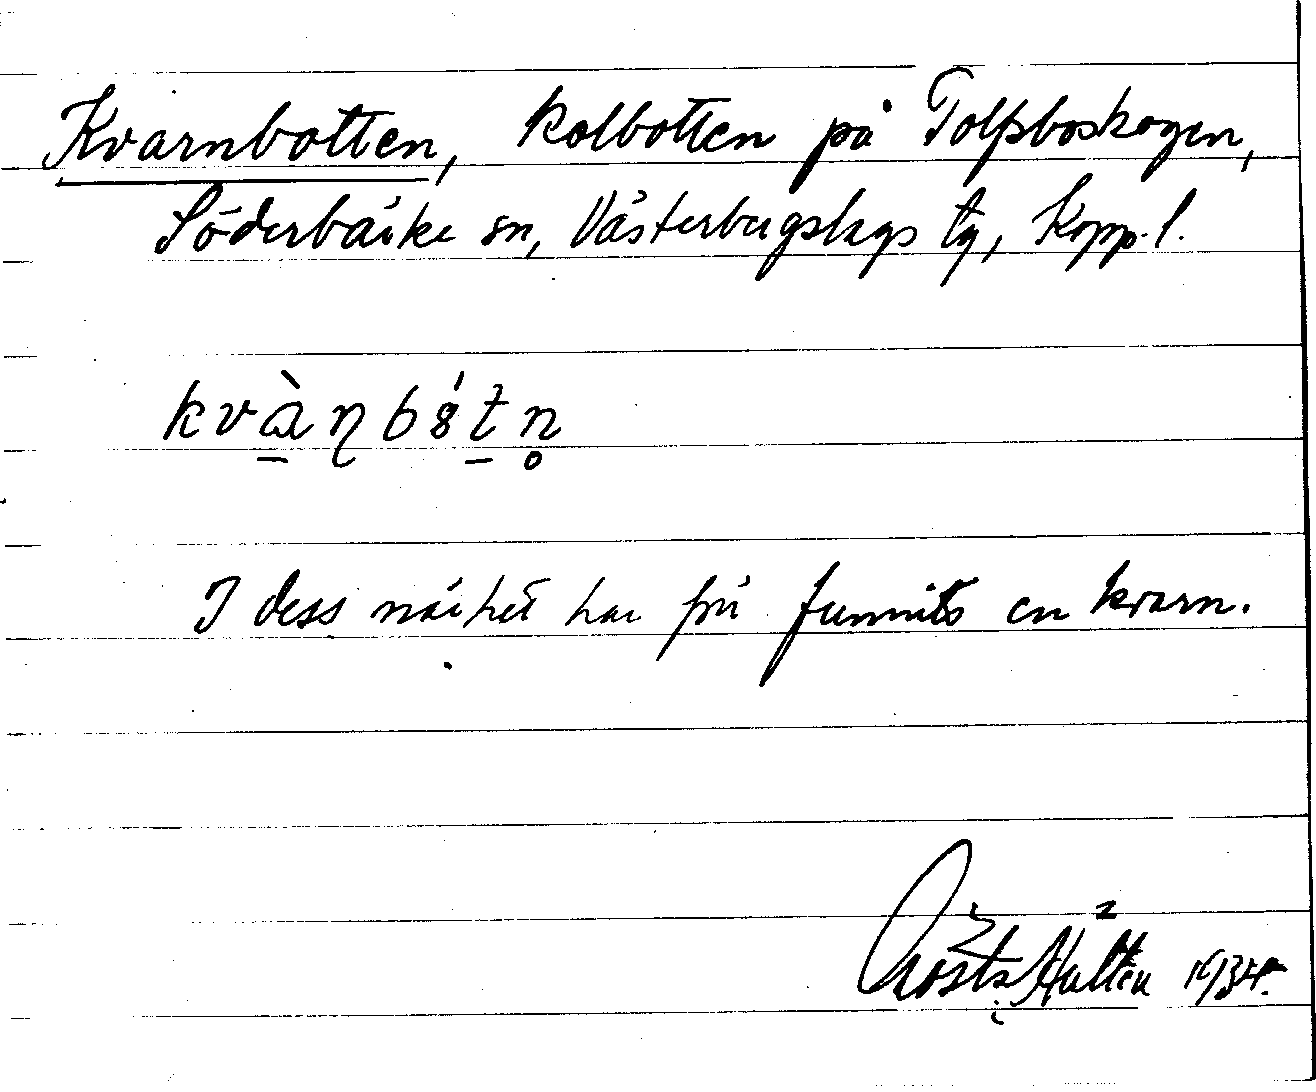 Kvarnbotten, kolbotten på Tolfsboskogen,
Söderbärke sn, Västerbergslags tg, Kopp. l.
kvà̠ɳb8́t̠n̥
I dess närhet har frú funnits en kvarn.
Gösta Hultén 1934.